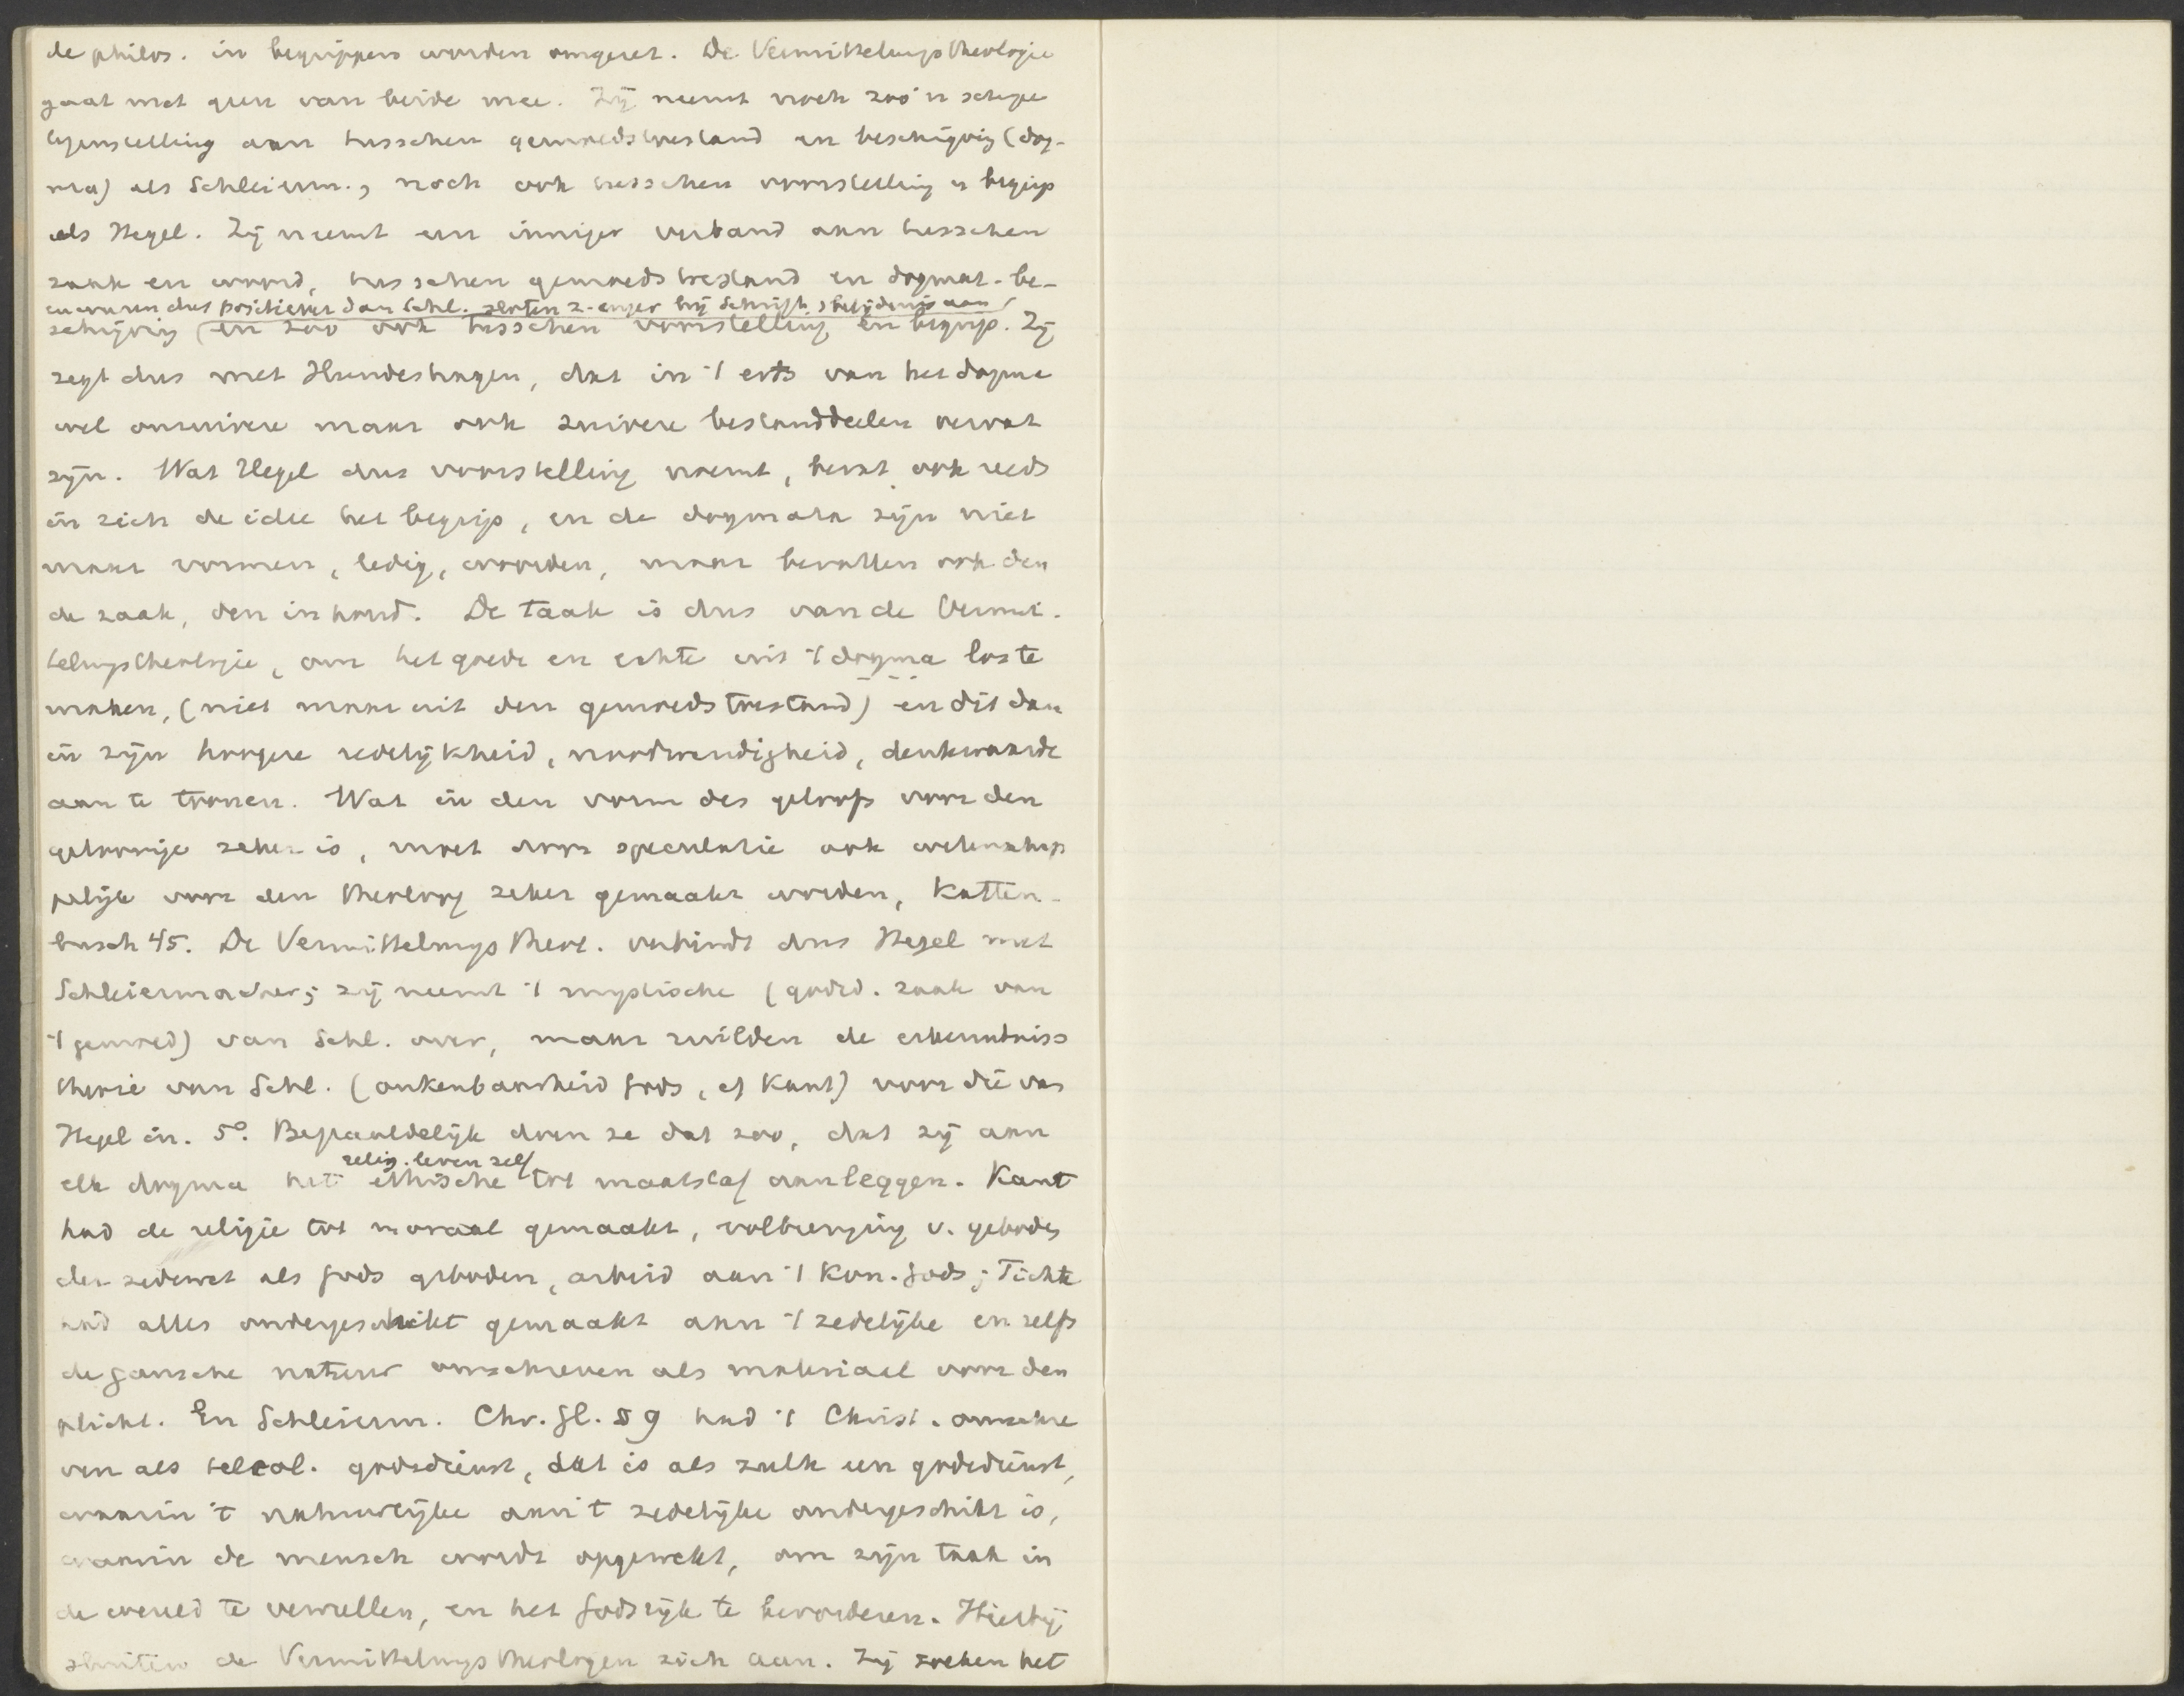 de philos. in begrippen worden omgezet. De Vermittelungstheologie
gaat met geen van beide mee. Zij neemt noch zoo'n scherpe
tegenstelling aan tusschen gemoedstoestand en beschrijving (dog-
ma) als Schleierm., noch ook tusschen voorstelling en begrip
als Hegel. Zij neemt een inniger verband aan tusschen
zaak en woord, tusschen gemoedstoestand en dogmat. be-
en waren dus positiever dan Schl. sloten z. enger bij Schrift, belijdenis aan
schrijving (en zoo ook tusschen voorstelling en begrip. Zij
zegt dus met Hundeshagen, dat in 't erts van het dogma
wel onzuivere maar ook zuivere bestanddeelen vervat
zijn. Wat Hegel dus voorstelling noemt, bevat ook reeds
in zich de idee het begrip, en de dogmata zijn niet
maar vormen, ledig, woorden, maar bevatten ook den
de zaak, den inhoud. De taak is dus van de Vermit-
telungstheologie, om het goede en echte uit 't dogma los te
maken, (niet maar uit den gemoedstoestand) en dit dan
in zijn hoogere redelijkheid, noodwendigheid, denkwaarde
aan te toonen. Wat in den vorm des geloofs voor den
geloovige zeker is, moet door speculatie ook wetenschap
pelijk voor den theoloog zeker gemaakt worden, Katten-
busch 45. De Vermittelungstheol. verbindt dus Hegel met
Schleiermacher; zij neemt 't mystische (godsd. zaak van
't gemoed) van Schl. over, maar ruilden de erkenntniss
theorie van Schl. (onkenbaarheid Gods, cf Kant) voor die van
Hegel in. 5º. Bepaaldelijk doen ze dat zoo, dat zij aan
relig. leven zelf
elk dogma het ethische tot maatstaf aanleggen. Kant
had de religie tot moraal gemaakt, volbrenging v. geboden
der zedewet als Gods geboden, arbeid aan 't Kon. Gods; Fichte
had alles ondergeschikt gemaakt aan 't zedelijke en zelfs
de gansche natuur omschreven als materiaal voor den
plicht. En Schleierm. Chr. Gl. § 9 had 't Christ. omschre
ven als teleol. godsdienst, dat is als zulk een godsdienst,
waarin 't natuurlijke aan 't zedelijke ondergeschikt is,
waarin de mensch wordt opgewekt, om zijn taak in
de wereld te vervullen, en het Godsrijk te bevorderen. Hierbij
sluiten de Vermittelungstheologen zich aan. Zij zoeken het